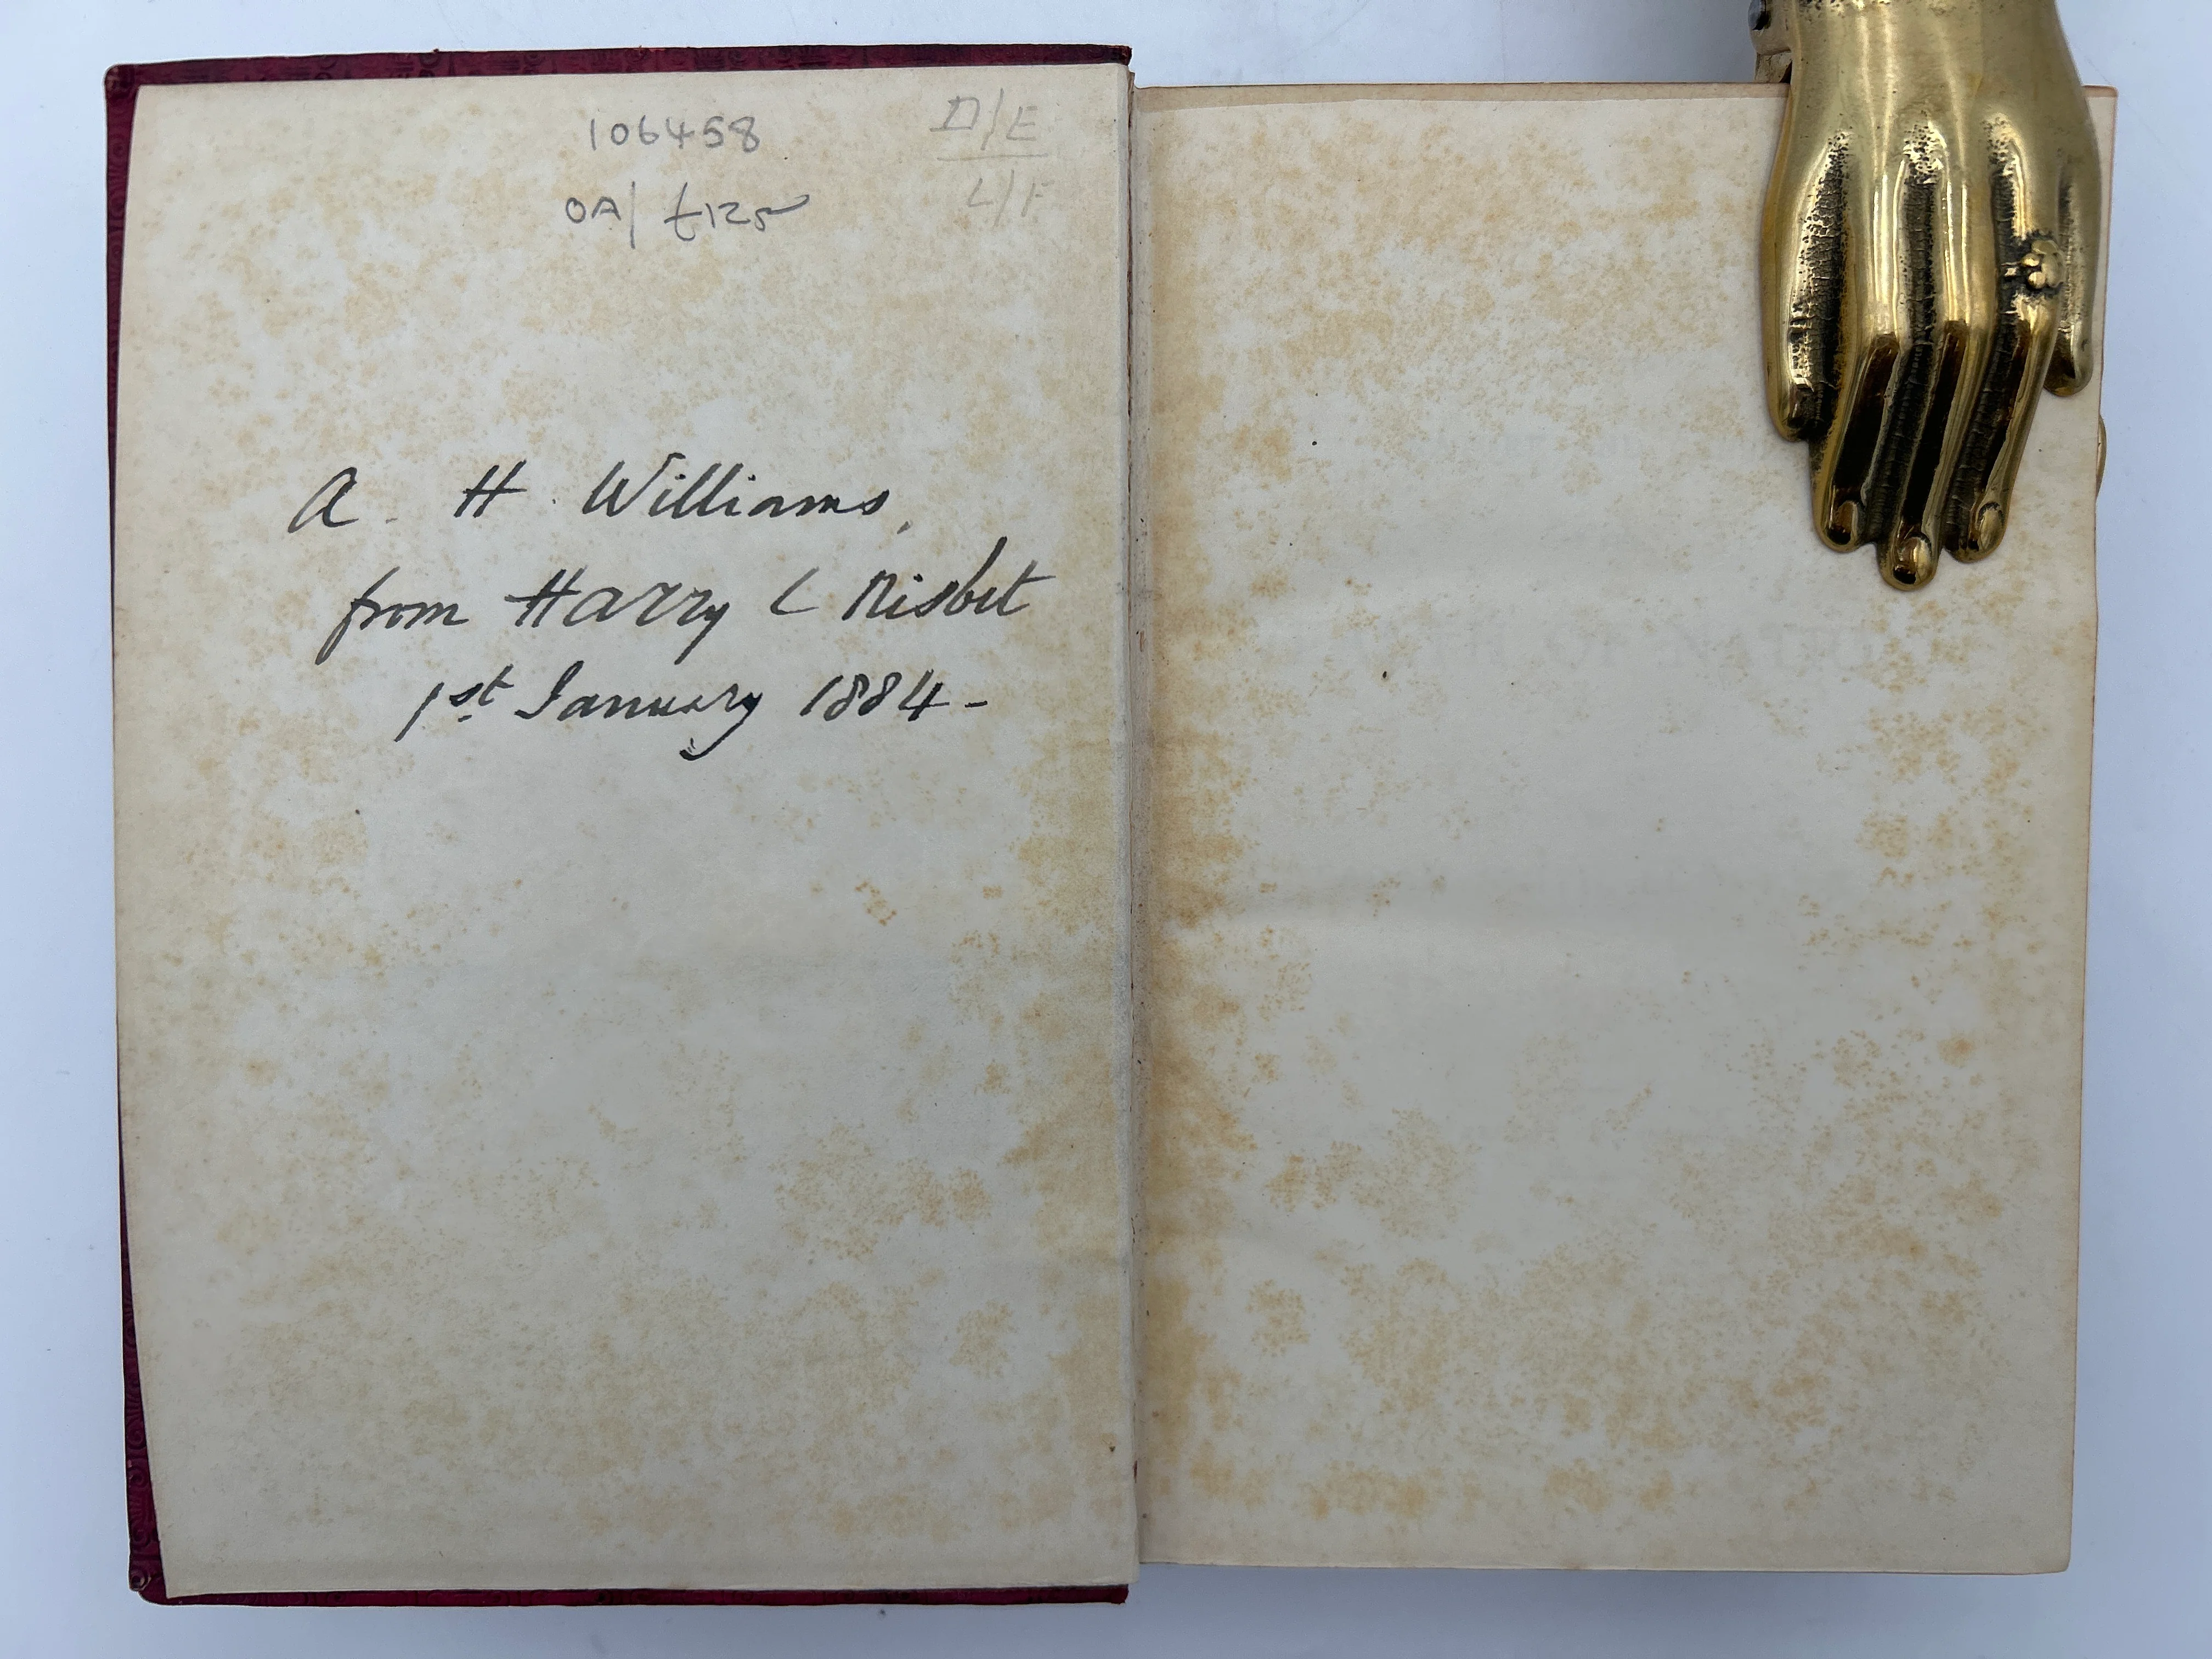 106458
D/E
OA/ £125
L/F
A. H. Williams,
from Harry L Nisbet
1st January 1884-